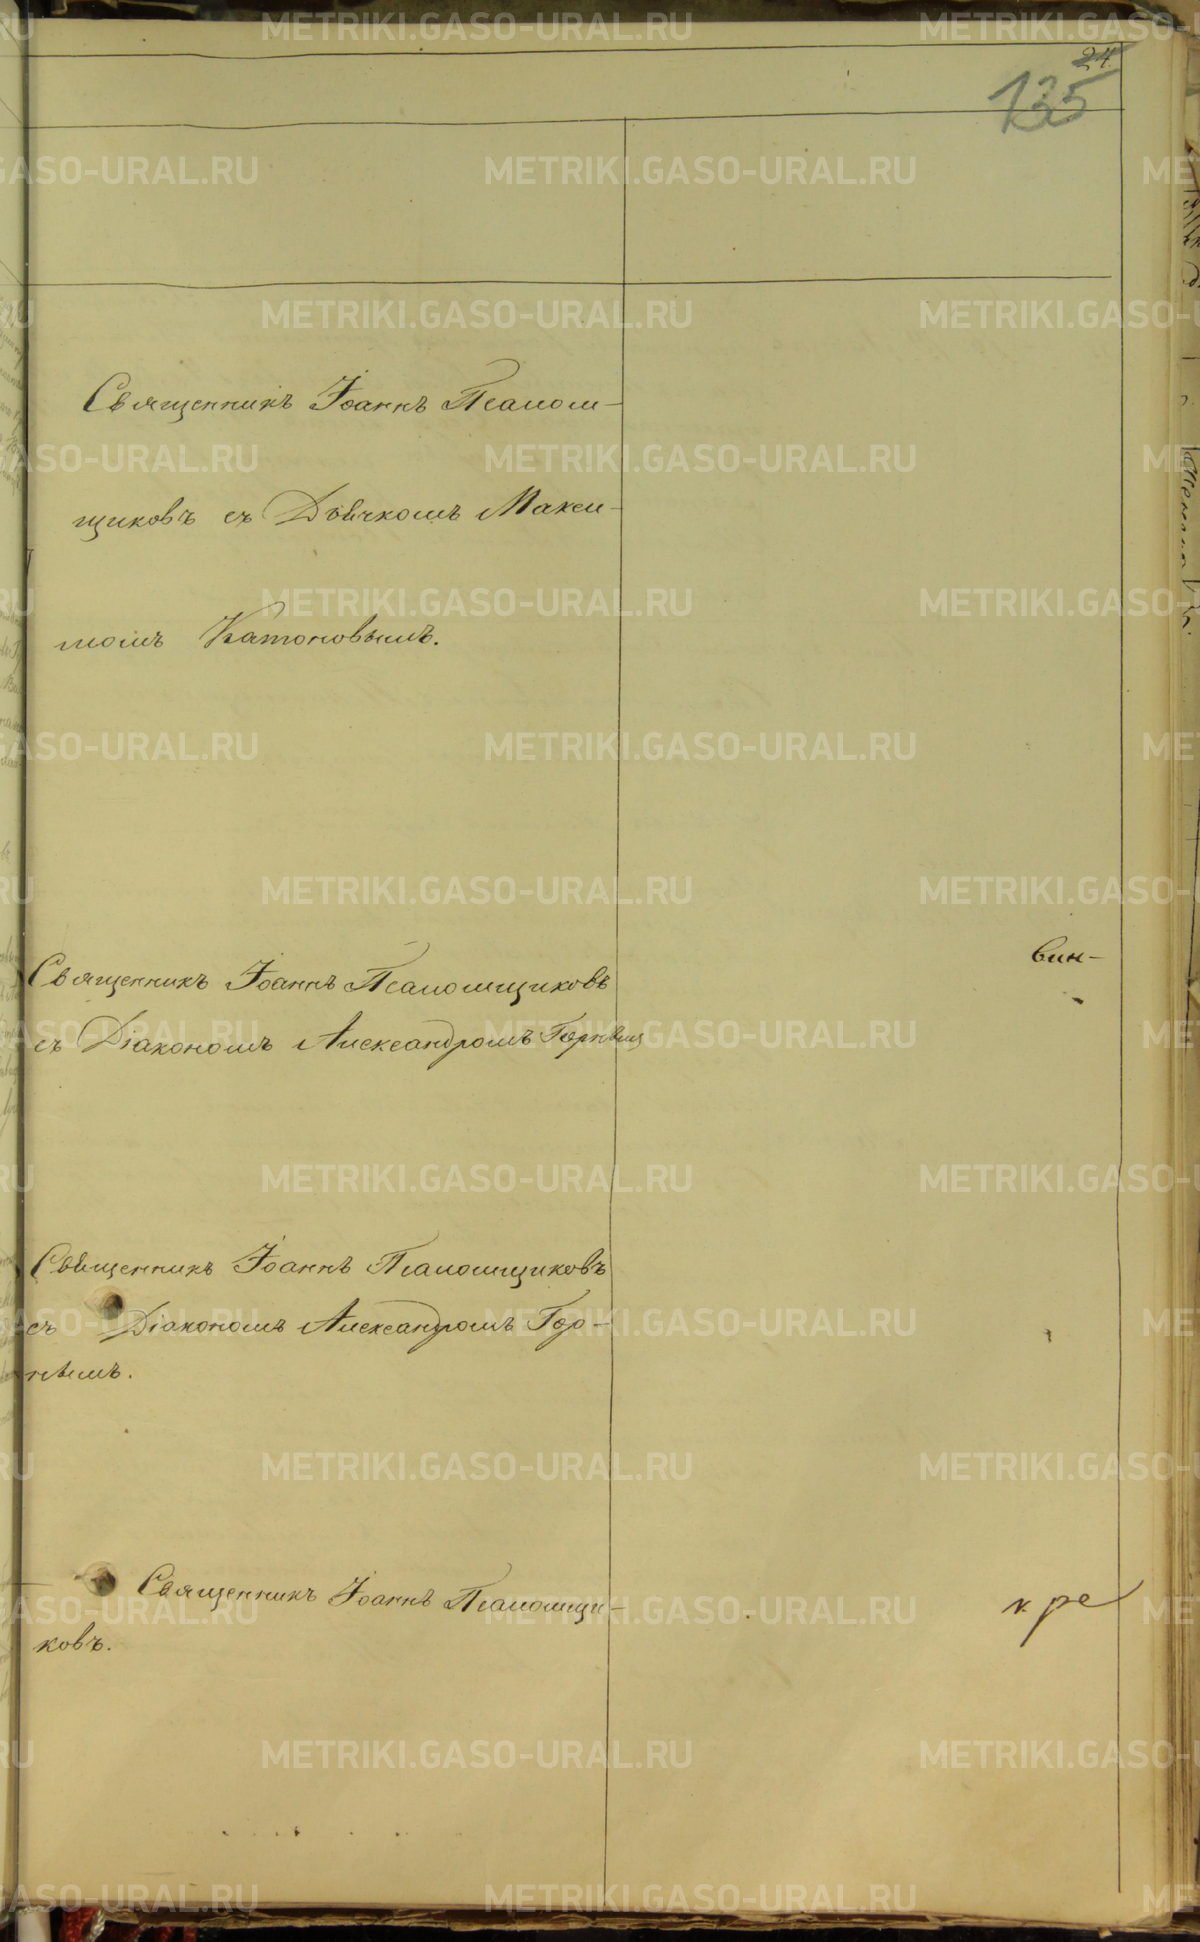 24
135
Священникъ Іоаннъ Псалом-
щиковъ съ Дьячкомъ Макси-
момъ Катоновымъ.
Священникъ Іоаннъ Псаломщиковъ
съ Діакономъ Александромъ Горнѣмъ
вин-
Священникъ Іоаннъ Псаломщиковъ
съ Діакономъ Александромъ Гор-
нѣмъ.
Священникъ Іоаннъ Псаломщи-
ковъ.
кре
METRIKI.GASO-URAL.RU